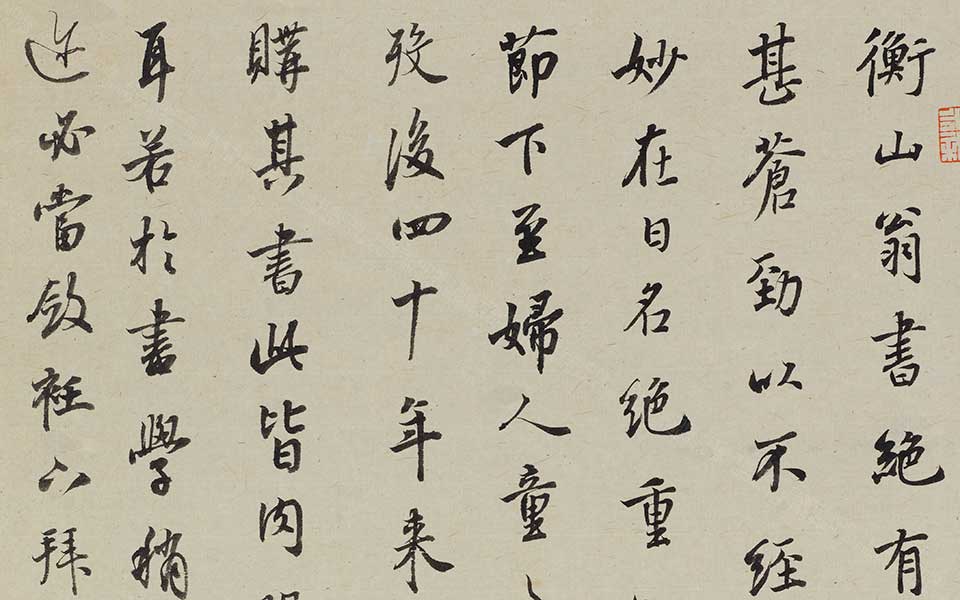 衡山翁書絕有
甚蒼勁以不經
妙在日名絕重
節下至婦人童
歿後四十年來
購其書此皆肉
耳若於書學稍
必當斂衽下拜